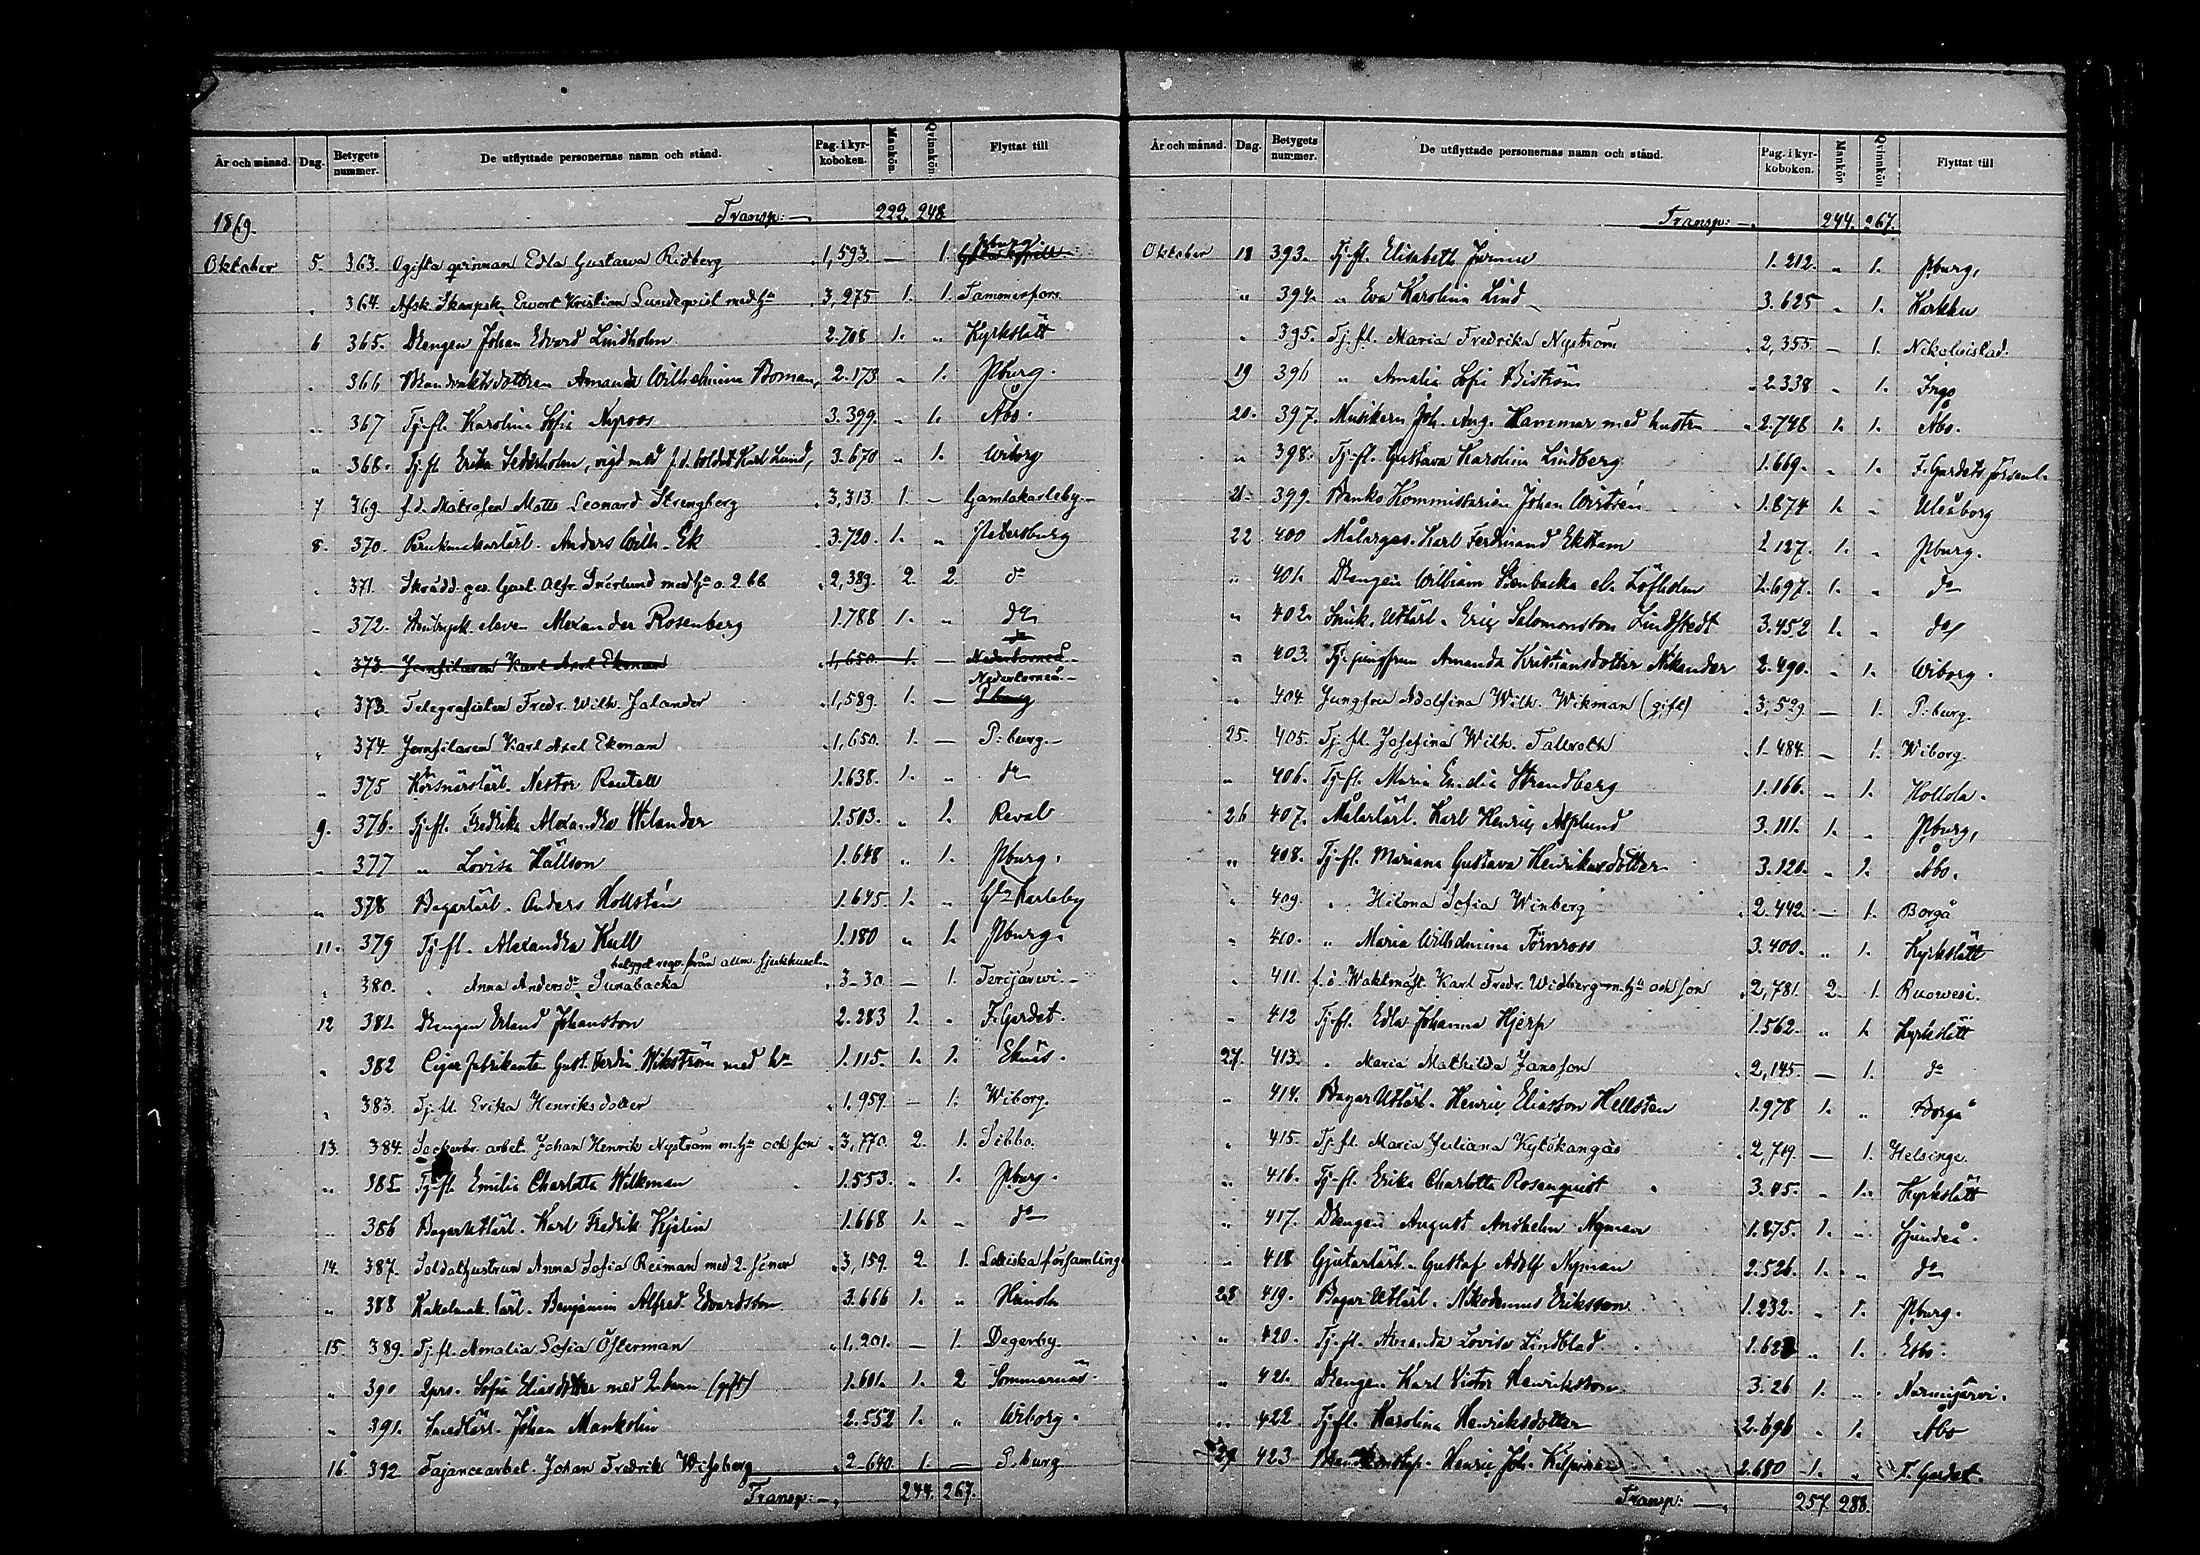 År och månad. Dag. Betygets nummer. De utflyttade personernas namn och stånd. Pag. i kyrkoboken. Mankön. Qvinnkön Flyttat till
1869. Transp: 222. 248
Oktober 5. 363. Ogifta qvinnan Edla Gustawa Ridberg 1,593. — 1. Pburg
" 364. Afsk. Skarpsk. Ewert Kristian Lundeqvist med hu 3,275 1. 1. Tammerfors
6 365. Drengen Johan Edvard Lindholm 2.708 1. " Kyrkslätt
" 366 Amanda Wilhelmina Boman, 2.173 " 1. Pburg.
" 367 Tj.fl. Karolina Sofia Nyroos 3.399. " 1. Åbo.
" 368. Tj.fl. Erika Sederholm, vigd med f.d. soldat Karl Lund, 3.670 " 1. Wiborg
7 369. f.d. Matrosen Matts Leonard Strengberg 3,313 1. — Gamlakarleby
8. 370. Perukmakarlärl. Anders Wilh. Ek 3.720. 1. " Petersburg
" 371. Skrädd. ges. Gust. Alfr. med hu o. 2 bb 2,389. 2. 2. do
" 372. eleven Alexander Rosenberg 1.788 1. " do
" 373 Jernfilaren Karl Axel Ekman 1,650. 1. — Nedertorneå
" 373. Telegrafisten Fredr. Wilh. Jalander 1,589. 1. — Nedertorneå P:burg
" 374. Jernfilaren Karl Axel Ekman 1,650. 1. — P:burg.
" 375 Körsnärslärl. Nestor Rautell 1.638. 1. " do
9. 376. Tj.fl. Fredrika Alexandra Wilander 1.503. " 1. Reval
" 377 " Lovisa Hällson 1.648 " 1. Pburg.
" 378 Bagarlärl. Anders Hollstén 1.645. 1. " Gla Karleby
11. 379 Tj.fl. Alexandra Kull 1.180 " 1. Pburg.
betyget reqv. från allm. sjukhuset
" 380. " Anna Andersdr Sunabacka 3-30. — 1. Terijärwi.
12 381. Drengen Erland Johansson 2.283 1. " F. Gardet.
" 382 Cigarfabrikanten Gust. Ferdin. Wikström med hu 1.115. 1. 1. Eknäs.
" 383. Tj.fl. Erika Henriksdotter 1.959. — 1. Wiborg.
13. 384. Sockerbr. arbet. Johan Henrik Nyström m. hu och son 3,770. 2. 1. Sibbo.
" 385 Tj.fl. Emilia Charlotta Wilkman 1.553. " 1. Pburg.
" 386 Bagarelärl. Karl Fredrik Kjelin 1.668 1. " do
14. 387. Soldathustrun Anna Sofia Reiman med 2. söner 3,159. 2. 1. församling
" 388 Kakelmak. lärl. Benjamin Alfred Edvardsson 3.666 1. " Heinola
15. 389. Tj.fl. Amalia Sofia Österman 1,201. — 1. Degerby.
" 390 Sofia Eliasdotter med 2 barn (gift) 1.601. 1. 2
" 391. Smedlärl. Johan Mankolin 2.552 1. " Wiborg.
16. 392 Fajancearbet. Johan Fredrik Wissberg 2-640. 1. — P.burg
Transp: 244. 267.
År och månad. Dag. Betygets nummer. De utflyttade personernas namn och stånd. Pag. i kyrkoboken. Mankön Qvinnkön Flyttat till
Transp: 244. 267.
Oktober 18 393. Tj.fl. Elisabeth 1.212. " 1. Pburg.
" 394. " Eva Karolina Lind 3.625 " 1. Karkku
" 395. Tj.fl. Maria Fredrika Nyström 2,355 — 1. Nikolaistad.
19 396 " Amalia Sofi Biström 2.338 " 1. Ingo
20. 397. Musikern Joh. Aug. Hammar med hustr. 2.748 1. 1. Åbo.
" 398. Tj.fl. Gustava Karolina Lindberg 1.669. " 1. F. Gardets församl.
21. 399. Banko Kommissarien Johan 1.874 1. " Uleåborg
22 400 Målarges. Karl Ferdinand Ekstam 2 127. 1. " Pburg.
" 401. Drengen William Stenbacka el. Löfholm 2.697. 1. " do
" 402. Snick. Utlärl. Eric Salomonsson Lindstedt 3.452 1. " do
" 403. Tj.jungfrun Amanda Kristiansdotter Nikander 2.490. " 1. Wiborg.
" 404. Jungfru Adolfina Wilh. Wikman (gift) 3,529. — 1. P:burg.
25. 405. Tj.fl. Josefina Wilh. Tallroth 1.484. — 1. Wiborg.
" 406. Tj.fl. Maria Emelia Strandberg 1.166. " 1. Hollola.
26 407. Målarlärl. Karl Henric Asplund 3.111. 1. " Pburg.
" 408. Tj.fl. Mariana Gustava Henriksdotter 3.120. " 1. Åbo.
" 409. " Hilma Sofia Winberg 2.442. — 1. Borgå
" 410. " Maria Wilhelmina Törnroos 3.400. " 1. Kyrkslätt
" 411. f.d. Waktmäst. Karl Fredr. Widberg m. hu och son 2,781. 2. 1. Ruowesi.
" 412 Tj.fl. Edla Johanna Hjerp 1.562. " 1. Kyrkslätt
27. 413. " Maria Mathilda Jansson 2,145. — 1. do
" 414. Bagar Utlärl. Henric Eliasson Hellsten 1.978 1. " Borgå
" 415. Tj.fl. Maria Juliana Kylökangas 2,719. — 1. Helsinge.
" 416. Tj.fl. Erika Charlotta Rosenqvist 3.45. " 1. Kyrkslätt
" 417. Drengen August Anshelm Nyman 1.875. 1. " Sjundeå.
" 418 Gjutarlärl. Gustaf Adolf Nyman 2.526. 1. " do
28 419. Bagar Utlärl. Nikodemus Eriksson 1.232. " 1. Pburg.
" 420. Tj.fl. Amanda Lovisa Lindblad 1.628 " 1. Esbo.
" 421. Drengen Karl Victor Henriksson 3.26 1. " Nurmijärvi.
" 422. Tj.fl. Karolina Henriksdotter 2.696 " 1. Åbo
29 423 Henric Joh. 2.680 1. " F. Gardet.
Transp: 257. 288.